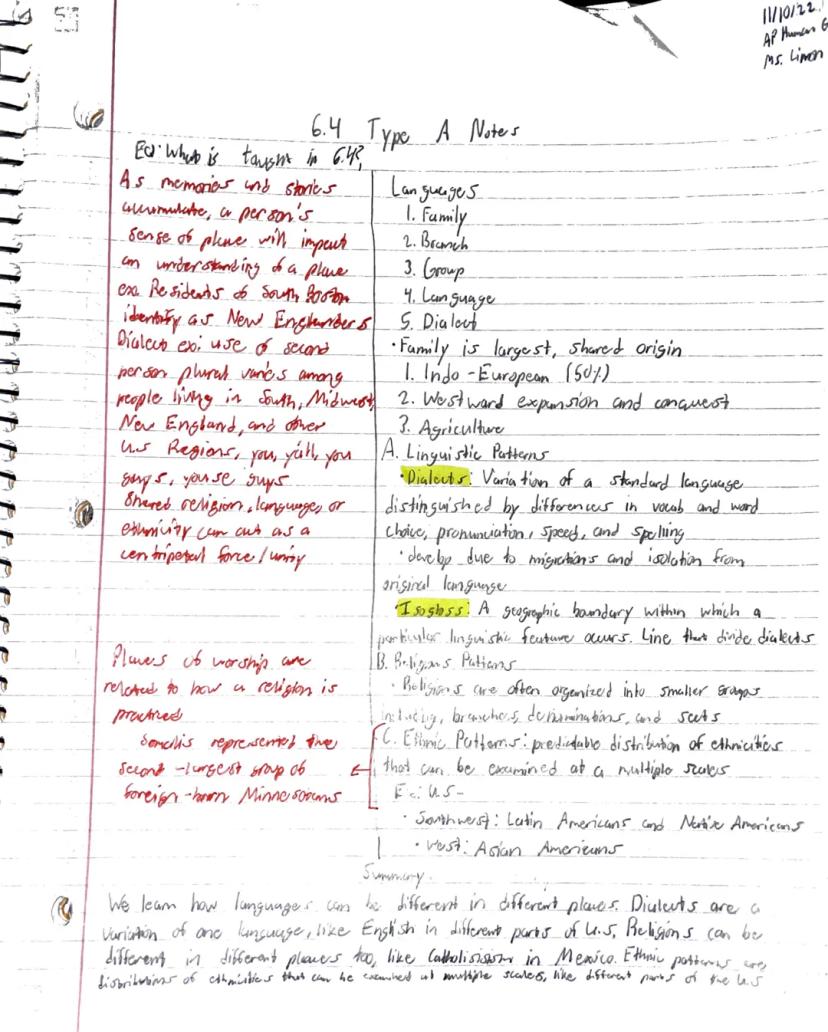 11/10/22
AP Human G
Ms. Limon
6.4 Type A Notes
EQ: What is taught in 6.4?
As memories and stories
accumulate, a person's
sense of place will impact
an understanding of a place
ex. Residents of South Boston
identify as New Englanders
Dialect ex: use of second
person plural varies among
people living in South, Midwest,
New England, and other
U.S Regions, you, y'all, you
guys, youse guys
Shared religion, language, or
ethnicity can act as a
centripetal force/unity
Places of worship are
related to how a religion is
practiced
Somalis represented the
second-largest group of
foreign-born Minnesotans
Languages
1. Family
2. Branch
3. Group
4. Language
5. Dialect
· Family is largest, shared origin
1. Indo-European (50%)
2. Westward expansion and conquest
3. Agriculture
A. Linguistic Patterns
· Dialects: Variation of a standard language
distinguished by differences in vocab and word
choice, pronunciation, speed, and spelling
· develop due to migrations and isolation from
original language
· Isogloss: A geographic boundary within which a
particular linguistic feature occurs. Line that divide dialects
B. Religious Patterns
· Religions are often organized into smaller groups
including, branches, denominations, and sects
C. Ethnic Patterns: predictable distribution of ethnicities
that can be examined at a multiple scales
Ex: U.S-
· Southwest: Latin Americans and Native Americans
· West: Asian Americans
Summary
We learn how languages can be different in different places. Dialects are a
variation of one language, like English in different parts of U.S, Religions can be
different in different places too, like Catholisism in Mexico. Ethnic patterns are
distributions of ethnicities that can be examined at multiple scales, like different parts of the U.S